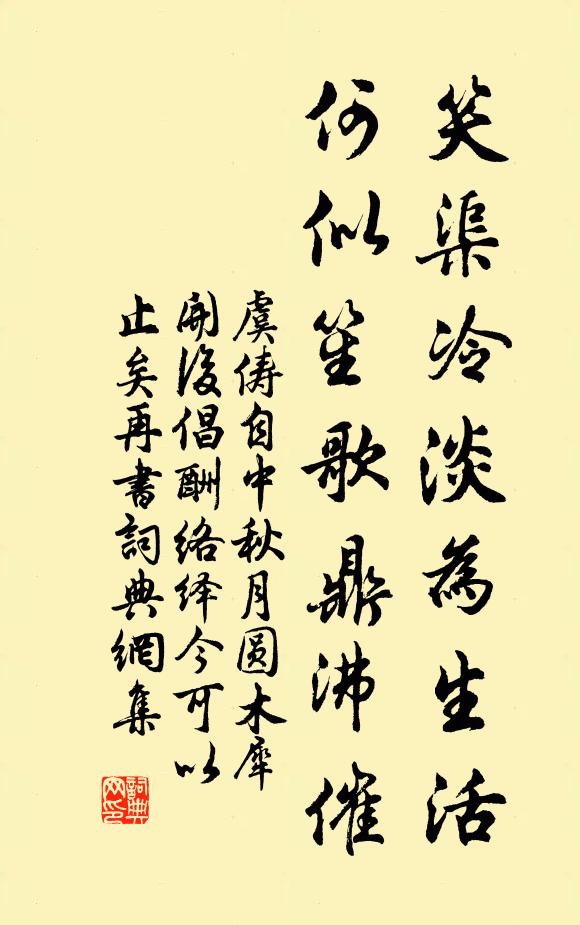 笑渠冷淡為生活
何似笙歌鼎沸催
虞俦自中秋月圆木犀
開後倡酬络绎今可以
止矣再書詞典網集
詞典
网印